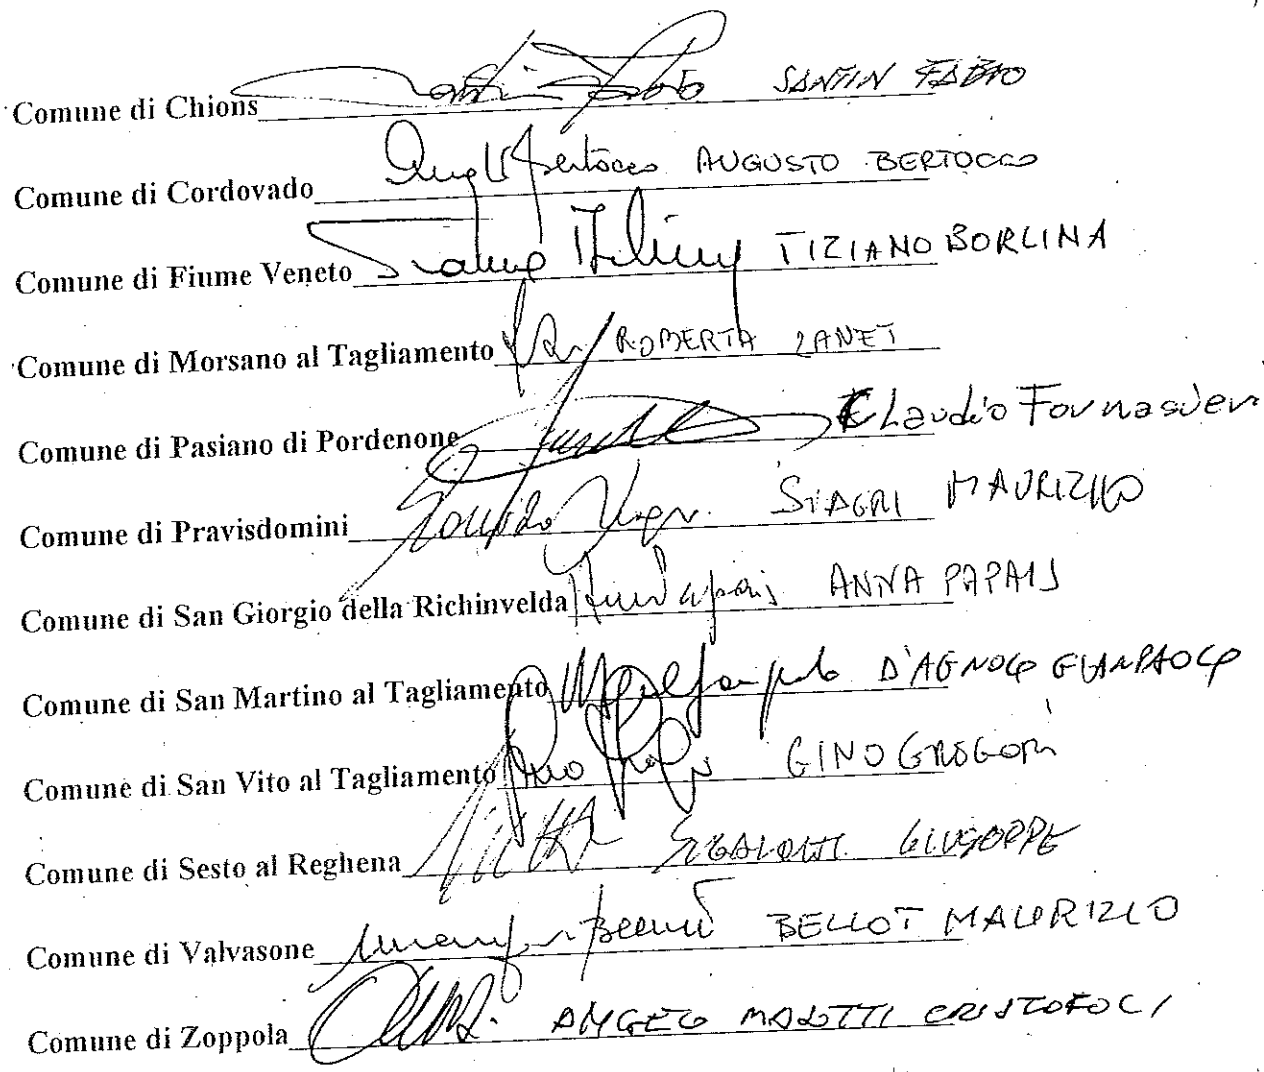 Comune di Chions SANTIN FABIO
Comune di Cordovado AUGUSTO BERTOCCO
Comune di Fiume Veneto TIZIANO BORLINA
Comune di Morsano al Tagliamento ROBERTA ZANET
Comune di Pasiano di Pordenone Claudio Fornasieri
Comune di Pravisdomini SIAGRI MAURIZIO
Comune di San Giorgio della Richinvelda ANNA PAPAIS
Comune di San Martino al Tagliamento D'AGNOLO GIANPAOLO
Comune di San Vito al Tagliamento GINO GREGORI
Comune di Sesto al Reghena GIUSEPPE
Comune di Valvasone BELLOT MAURIZIO
Comune di Zoppola ANGELO MASOTTI CRISTOFOLI